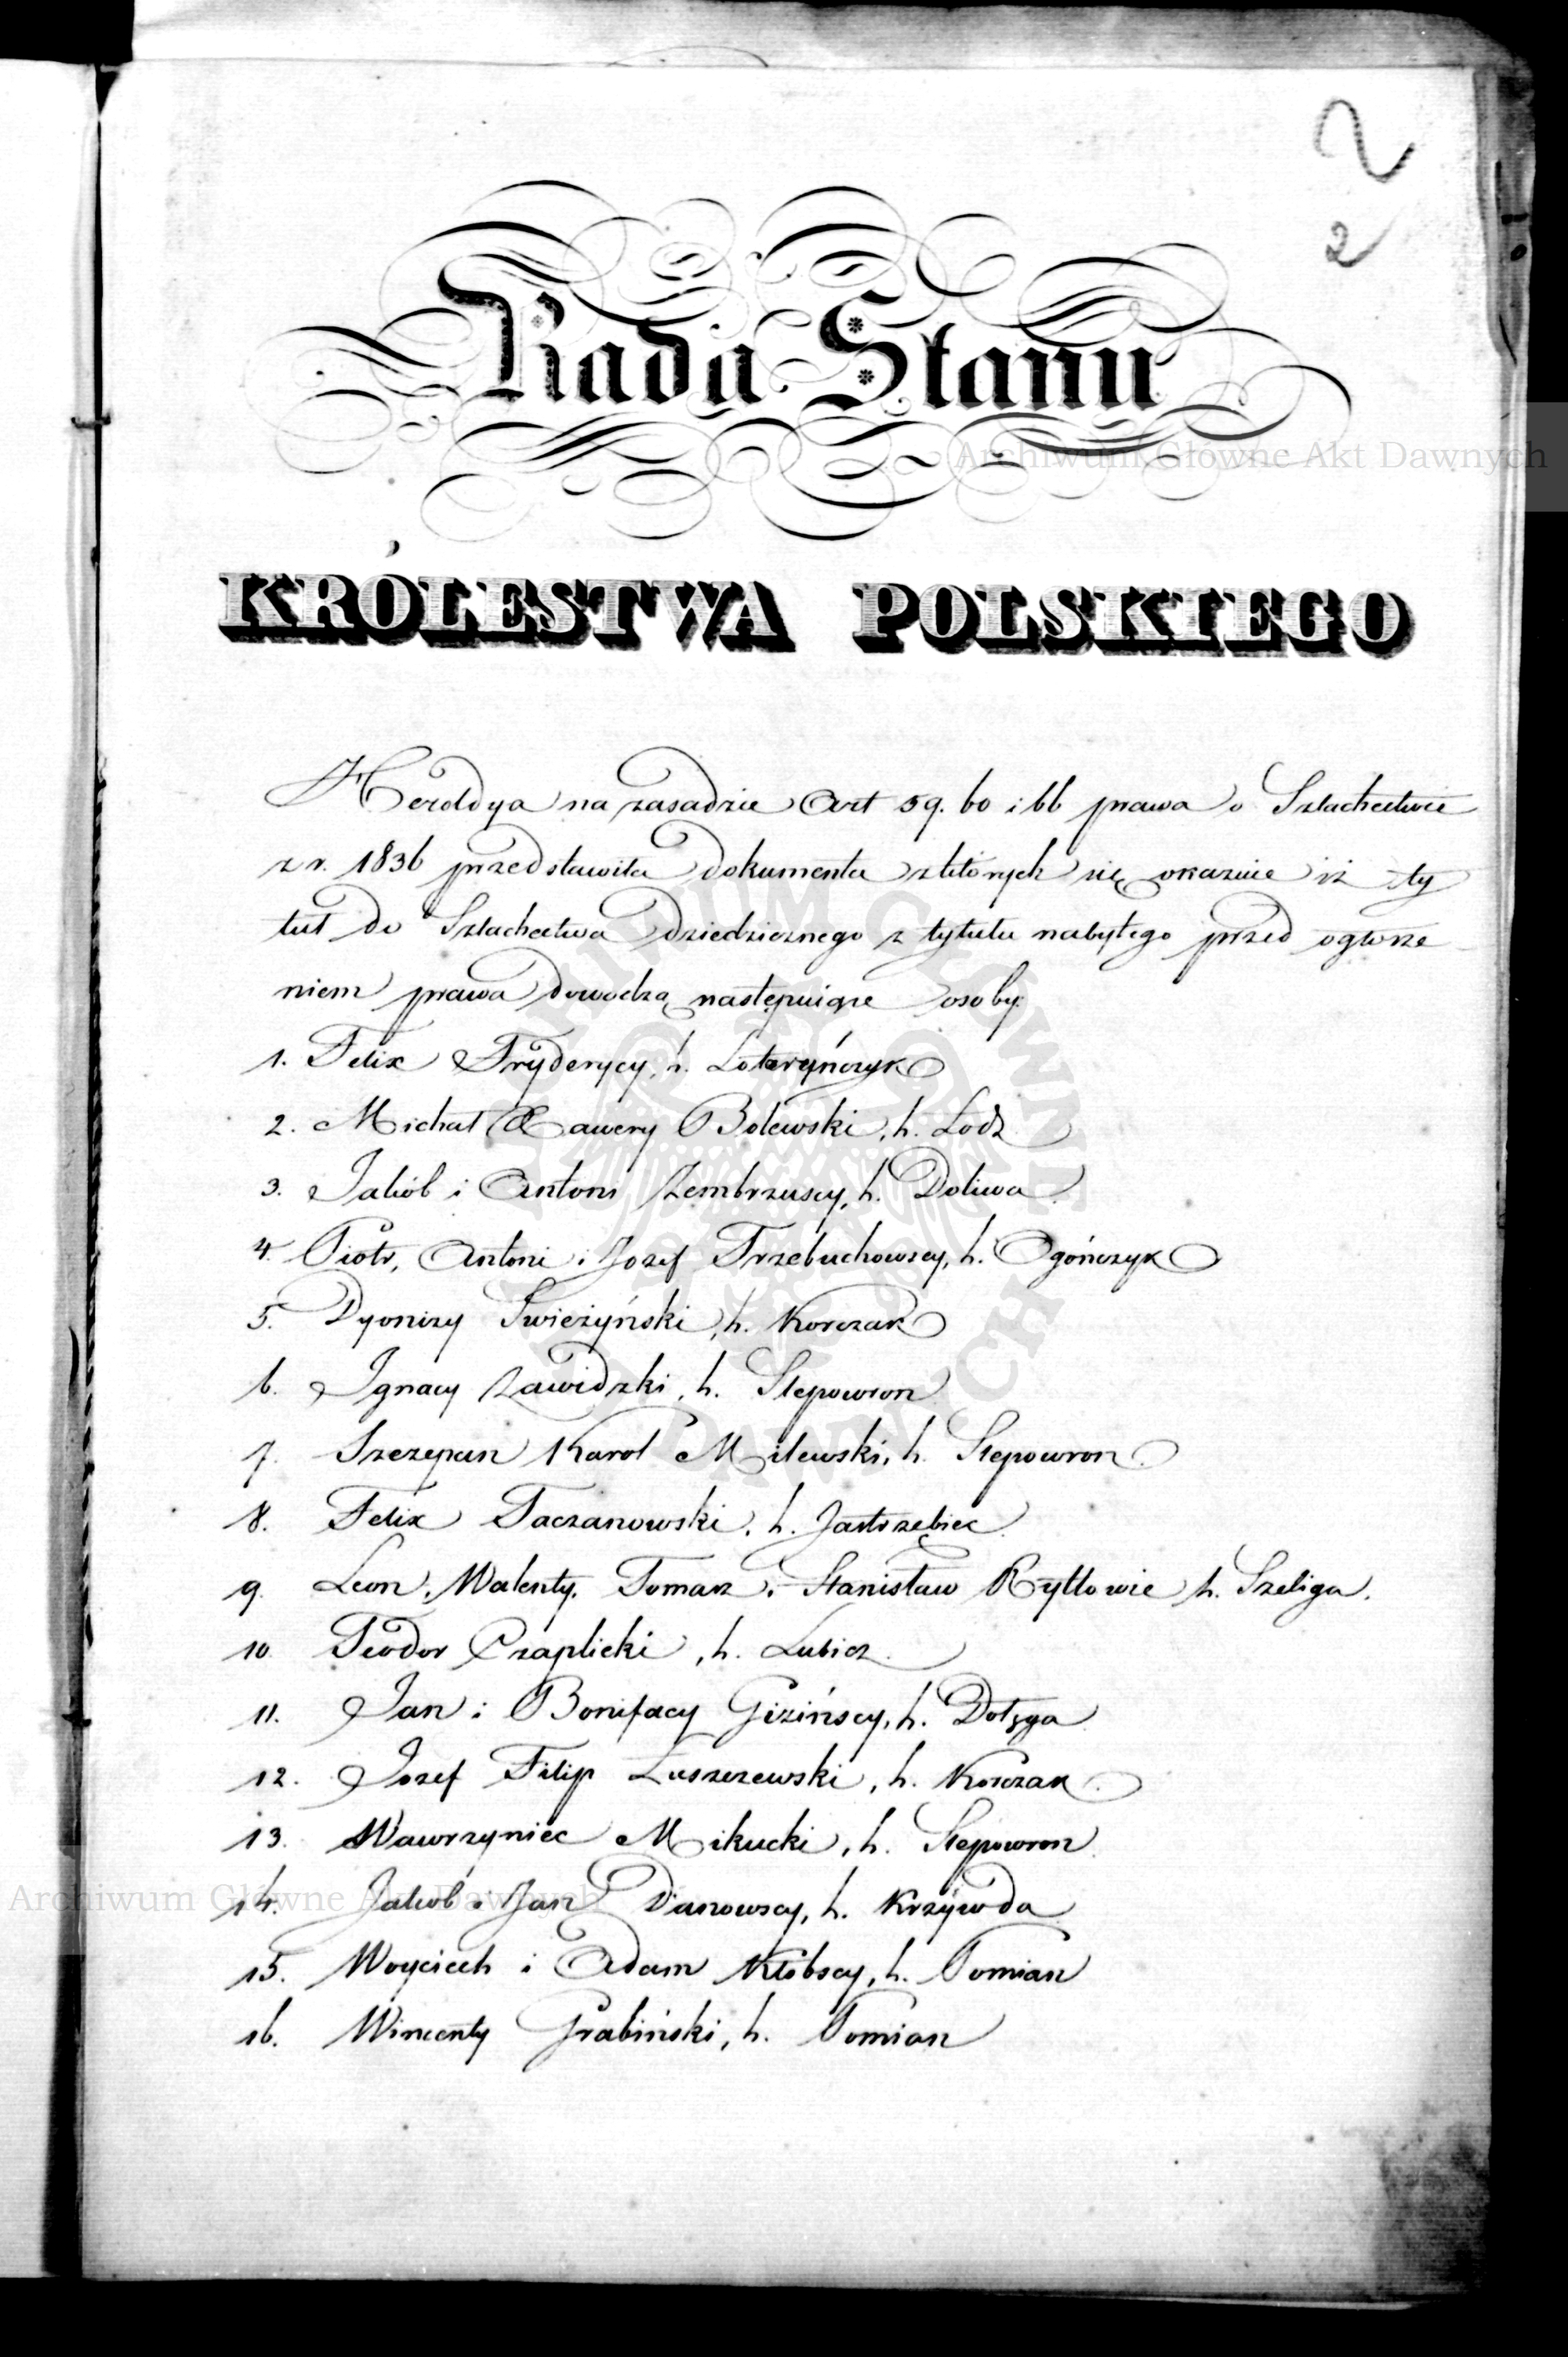 2
2
Rada Stanu
Archiwum Główne Akt Dawnych
KRÓLESTWA POLSKIEGO
Heroldya na zasadzie Art 59. 60 i 66 prawa o Szlachectwie
z r. 1836 przedstawiła dokumenta z których się okazuie iż ty
tuł do Szlachectwa dziedzicznego z tytułu nabytego przed ogłosze
niem prawa dowodzą następuiące osoby:
1. Felix Fryderycy, h. Lotaryńczyk
2. Michał Xawery Bolewski, h. Łodz
3. Jakób i Antoni Zembrzuscy, h. Doliwa
4. Piotr, Antoni i Jozef Trzebuchowscy, h. Ogończyk
5. Dyonizy Swieżyński, h. Korczak
6. Ignacy Zawidzki, h. Slepowron
7. Szczepan Karol Milewski, h. Slepowron
8. Felix Taczanowski, h. Jastrzębiec
9. Leon, Walenty, Tomasz i Stanisław Rytlowie h. Szeliga.
10. Teodor Czaplicki, h. Lubicz
11. Jan i Bonifacy Gizińscy, h. Dołęga
12. Jozef Filip Łuszczewski, h. Korczak
13. Wawrzyniec Mikucki, h. Slepowron
Archiwum Główne Akt Dawnych
14. Jakób i Jan Dianowscy, h. Krzywda
15. Woyciech i Adam Kłobscy, h. Pomian
16. Wincenty Grabiński, h. Pomian
ARCHIWUM GŁÓWNE AKT DAWNYCH